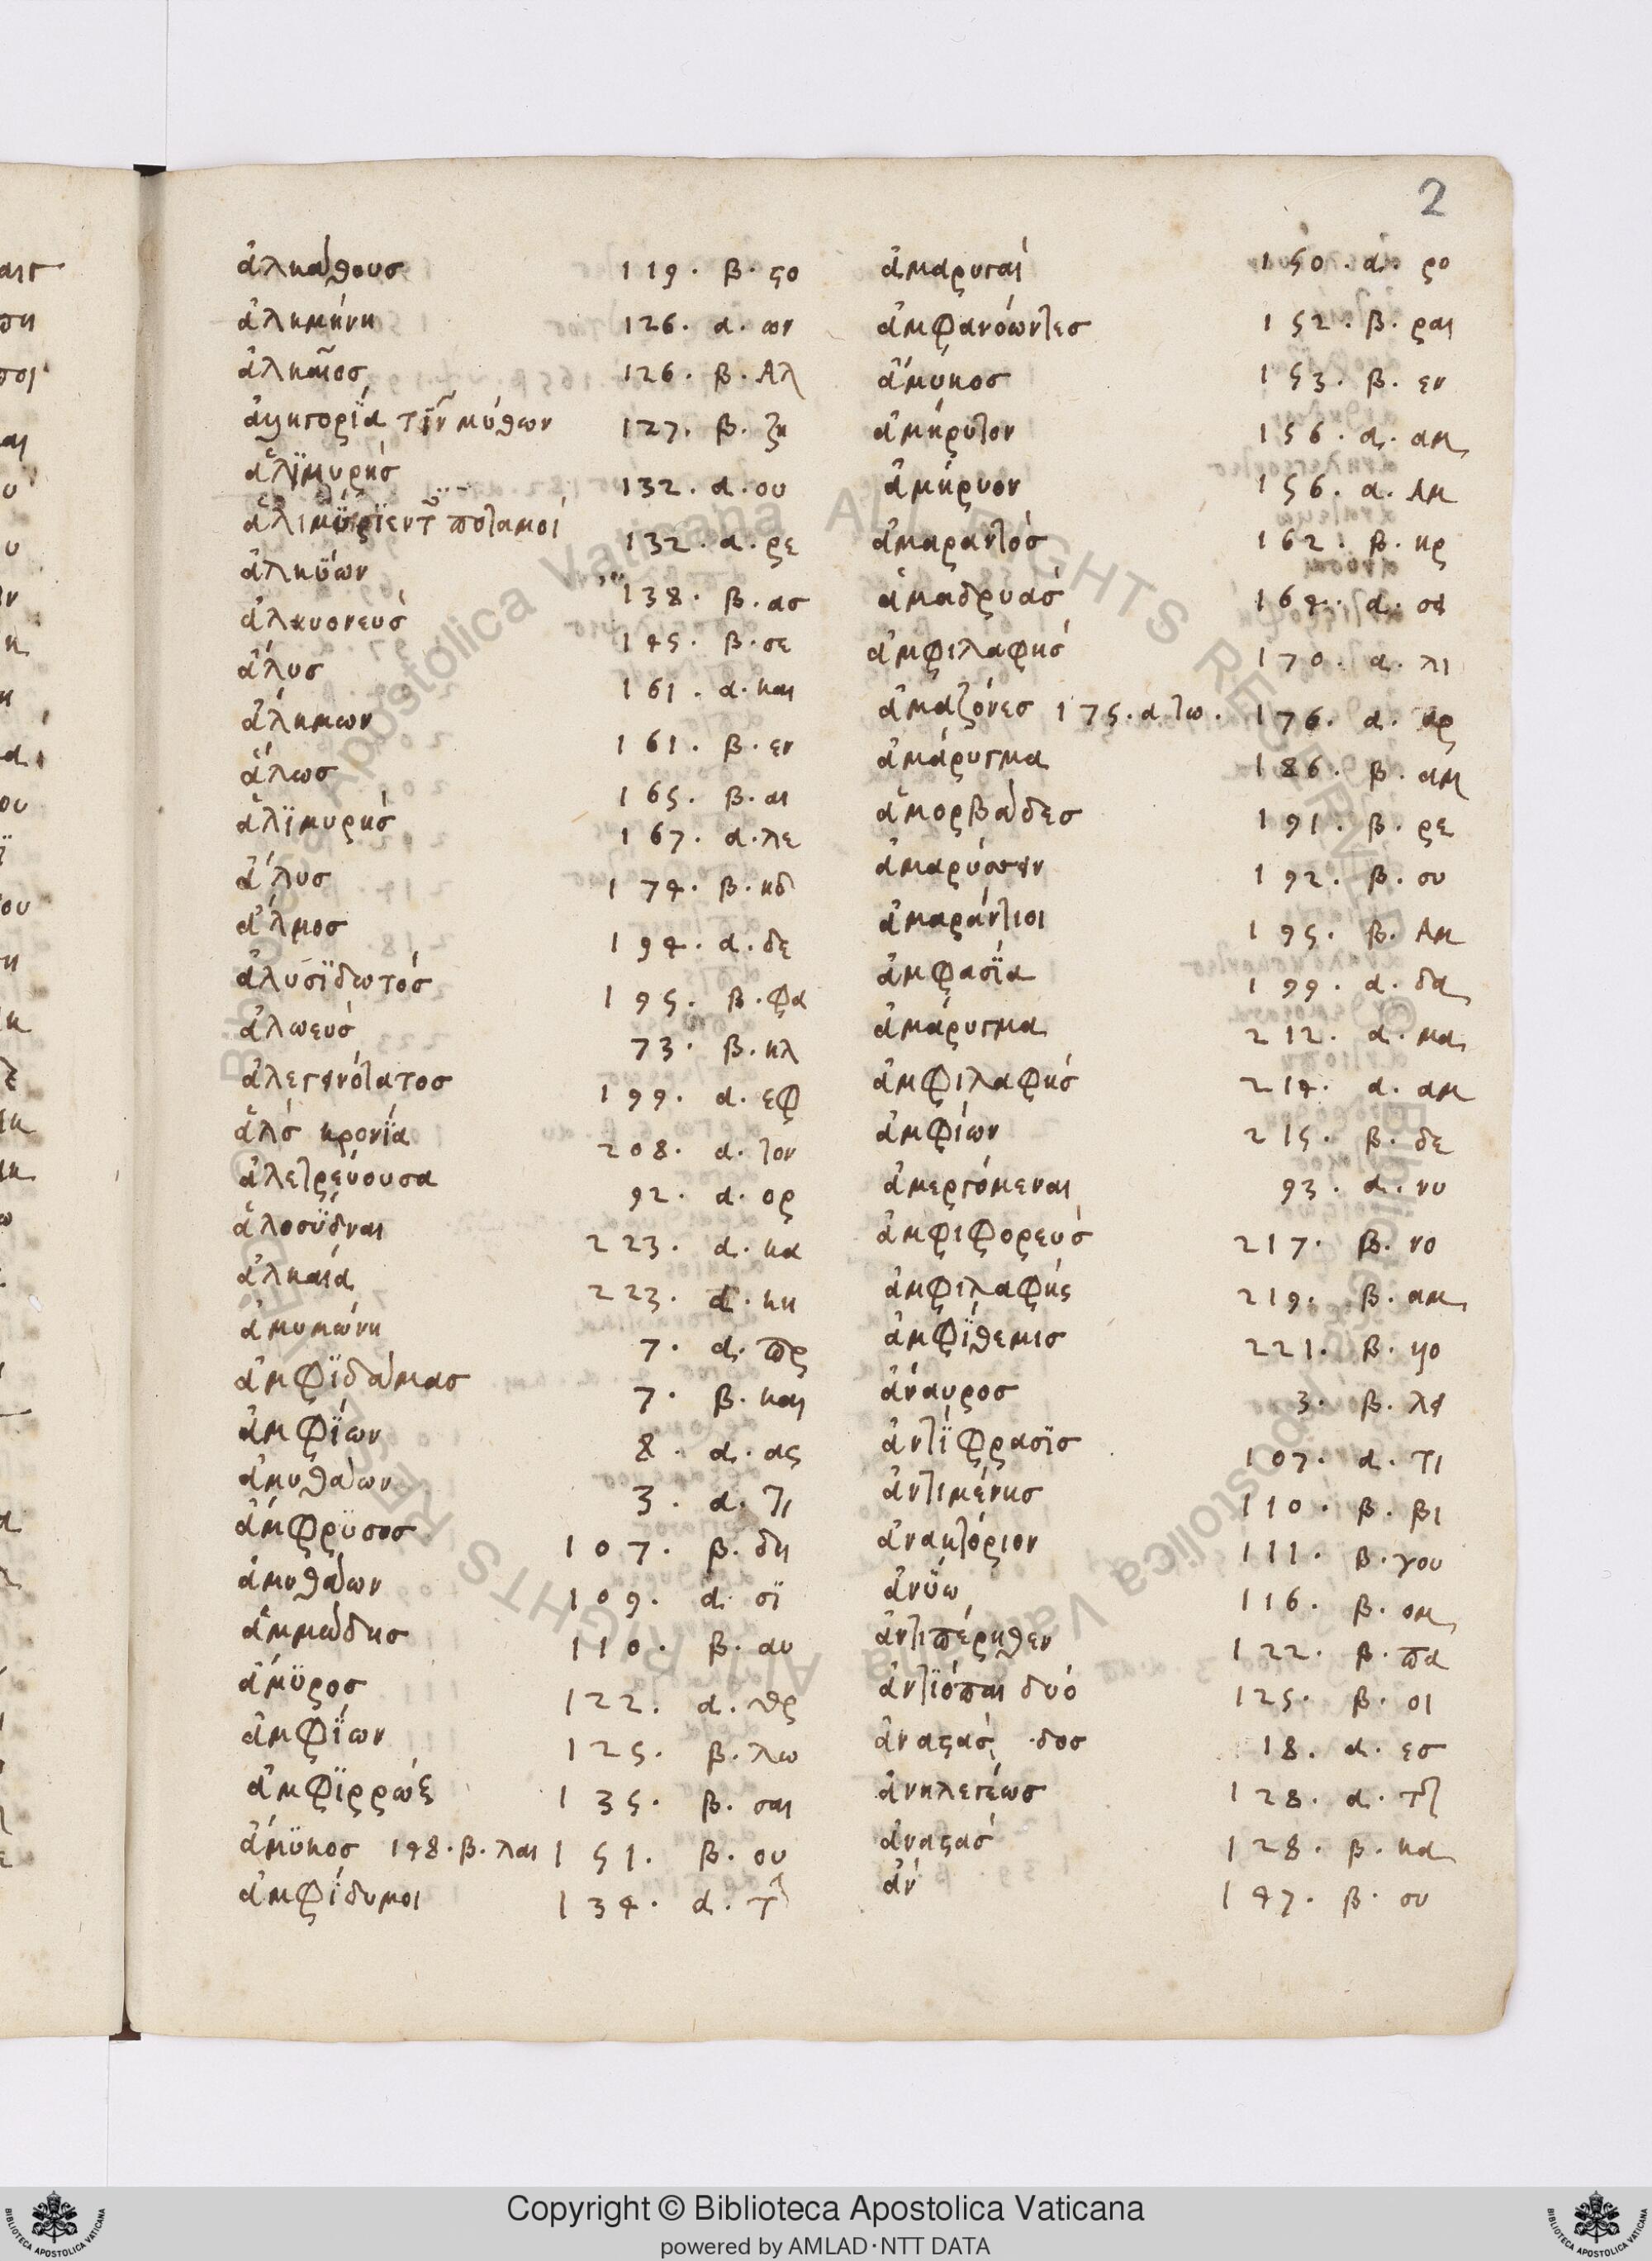 2
ἀλκάθουσ 119. β. ϛο
ἀλκμήνη 126. α. ων
ἀλκαῖοσ 126. β. Αλ
ἀλληγορΐα τῶν μύθων 127. β. ζη
ἁλϊμυρήσ 132. α. ου
ποταμοί 132. α. ρε
ἀλκϋών 138. β. ασ
ἀλκυονεύσ 145. β. σε
ἅλυσ 161. α. και
ἀλήμων 161. β. εν
ἅλωσ 165. β. αι
ἁλϊμυρήσ 167. α. λε
ἅλυσ 174. β. κδ
ἄλμοσ 194. α. δε
ἁλυσϊδωτόσ 195. β. φα
ἀλωεύσ 73. β. κλ
ἀλεγεινότατοσ 199. α. εφ
ἁλσ κρονΐα 208. α. τον
ἀλετρεύουσα 92. α. ορ
ἁλοσύδναι 223. α. κα
ἀλκαία 223. α. κη
ἀμυμώνη 7. α. πρ
ἀμφϊδάμασ 7. β. και
ἀμφΐων 8. α. ας
ἀμυθάων 3. α. τι
ἄμφρϋσοσ 107. β. δη
ἀμυθάων 109. α. σϊ
ἀμμώδησ 110. β. αυ
ἄμϋροσ 122. α. θρ
ἀμφΐων 125. β. λω
ἀμφϊρρώξ 135. β. σαι
ἄμϋκοσ 148. β. λαι 151. β. ου
ἀμφίδυμοι 134. α.
ἀμαρυγαί 150. α. ρο
ἀμφανόωντεσ 152. β. ραι
ἄμυκοσ 153. β. εν
ἀμήρυτον 156. α. αμ
ἀμήρυον 156. α. Αμ
ἀμαραντόσ 162. β. κρ
ἁμαδρυάσ 164. α. σε
ἀμφιλαφήσ 170. α. λι
ἀμαζόνεσ 175. α τω. 176. α. αρ
ἀμάρυγμα 186. β. αμ
ἀμορβάδεσ 191. β. ρε
192. β. συ
ἀμαράντιοι 195. β. Αμ
ἀμφασΐα 199. α. δα
ἀμάρυγμα 212. α. μα
ἀμφιλαφήσ 214. α. αμ
ἀμφίων 215. β. δε
ἀμεργόμεναι 93. α. νυ
ἀμφιφορεύσ 217. β. νο
ἀμφιλαφής 219. β. αμ
ἀμφΐθεμισ 221. β. λλο
ἄναυροσ 3. β. λε
ἀντΐφρασϊσ 107. α. τι
ἀντιμένησ 110. β. βι
ἀνακτόριον 111. β. γου
ἀνΰω 116. β. ομ
ἀντιπέρηθεν 122. β. πα
ἀντϊόπαι δυό 125. β. οι
ἀναϛάσ .δοσ 18. α. εσ
ἀνηλεγέωσ 128. α.
ἀναϛάσ 128. β. κα
ἄν 147. β. συ
Copyright © Biblioteca Apostolica Vaticana
powered by AMLAD·NTT DATA